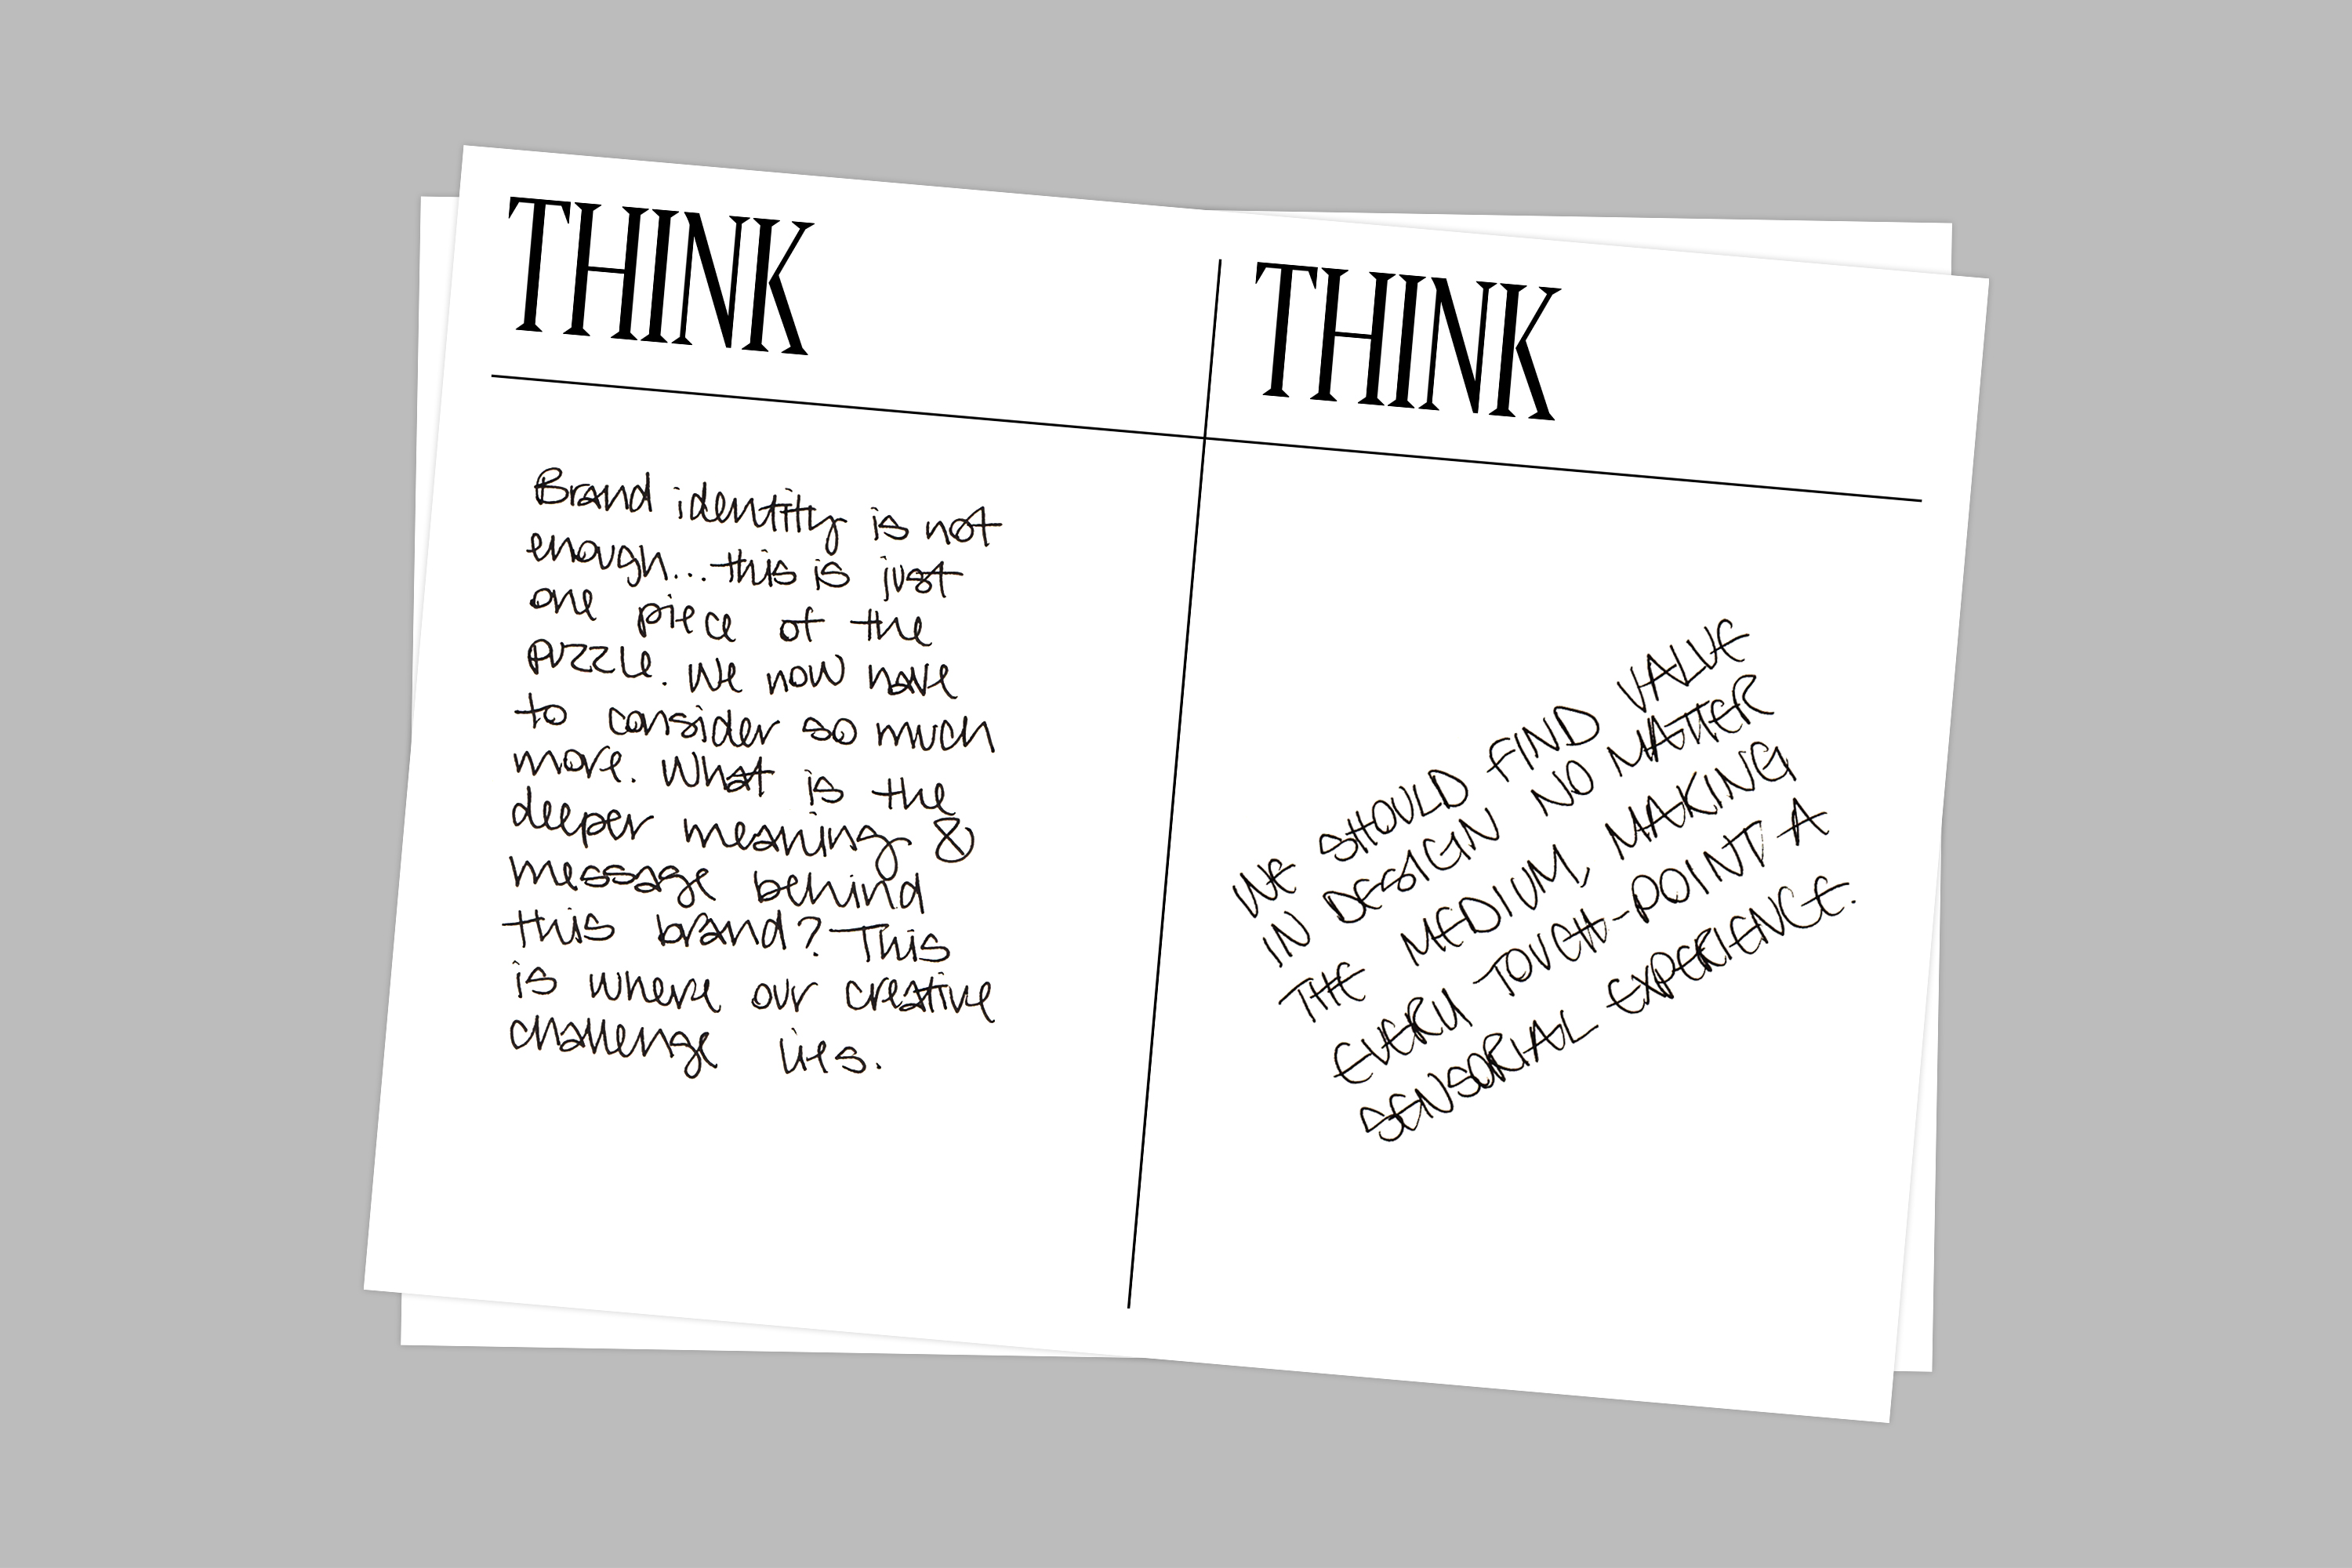 THINK
Brand identity is not
enough... this is just
one piece of the
puzzle. We now have
to consider so much
more. What is the
deeper meaning &
message behind
this brand? This
is where our creative
challenge lies.
THINK
WE SHOULD FIND VALUE
IN DESIGN NO MATTER
THE MEDIUM, MAKING
EVERY TOUCH-POINT A
SENSORIAL EXPERIENCE.